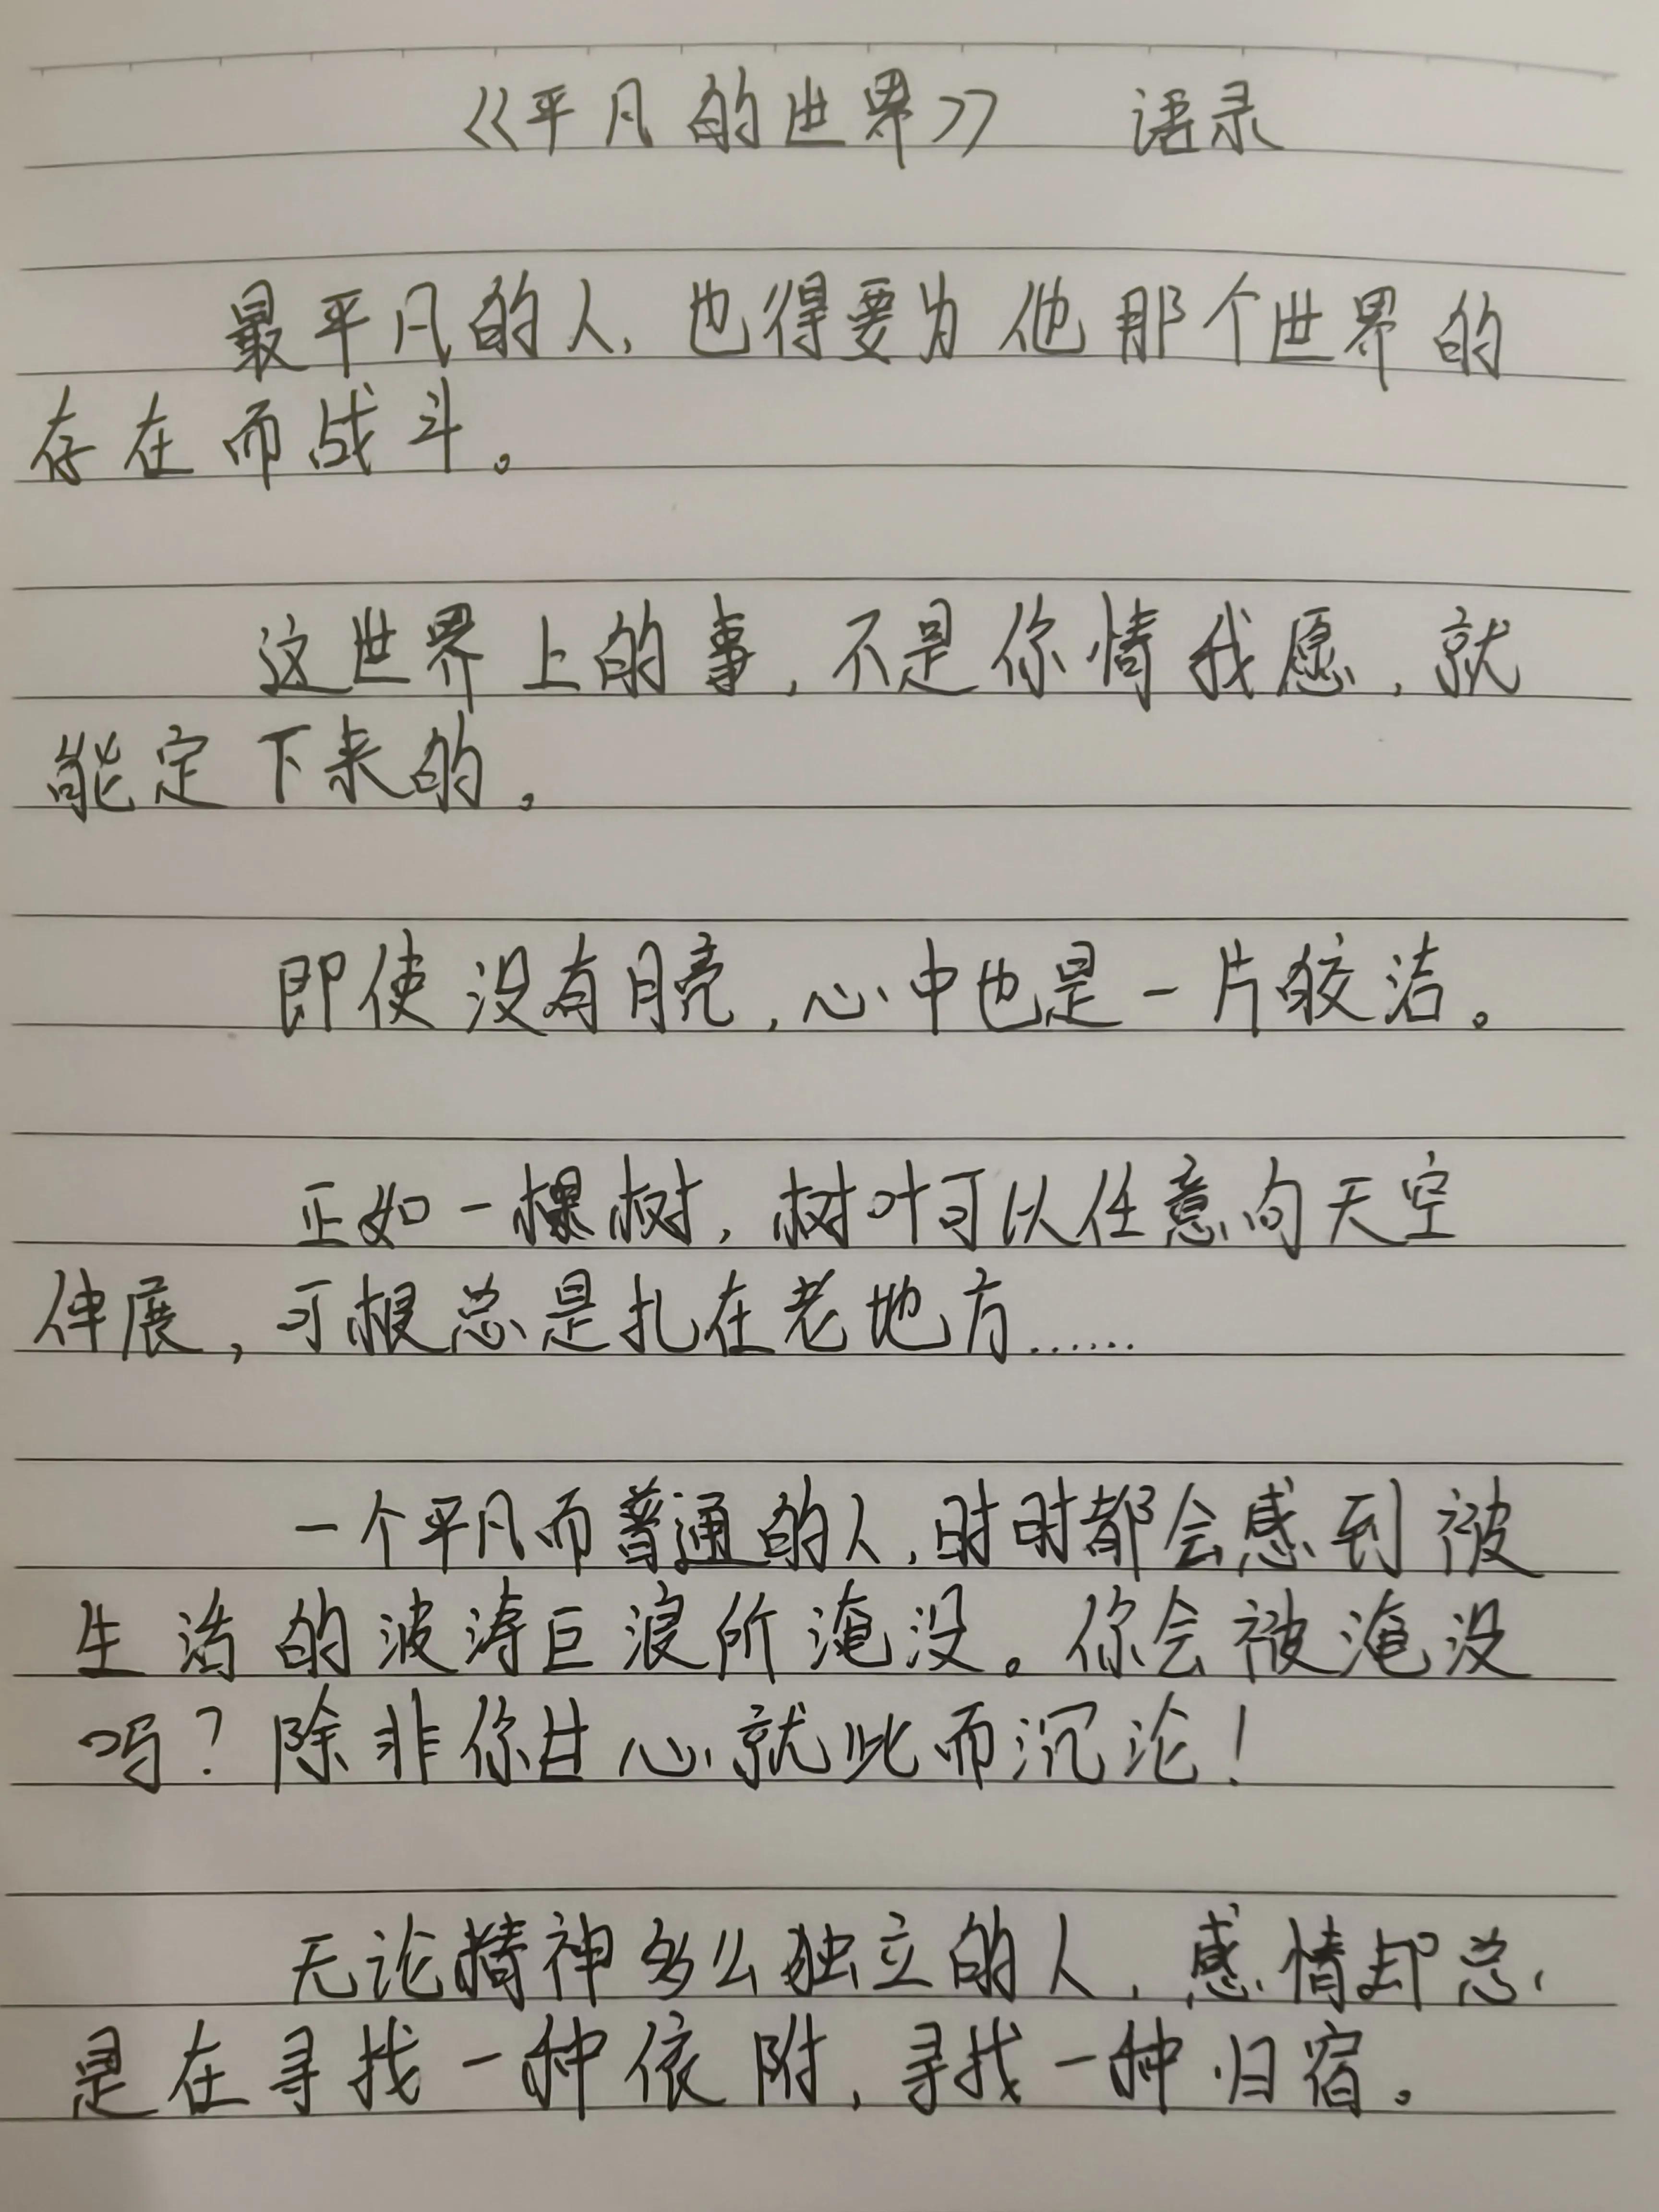 《平凡的世界》 语录
最平凡的人,也得要为他那个世界的
存在而战斗。
这世界上的事,不是你情我愿,就
能定下来的。
即使没有月亮,心中也是一片皎洁。
正如一棵树,树叶可以任意向天空
伸展,可根总是扎在老地方……
一个平凡而普通的人,时时都会感到被
生活的波涛巨浪所淹没。你会被淹没
吗?除非你甘心就此而沉沦!
无论精神多么独立的人,感情却总
是在寻找一种依附,寻找一种归宿。